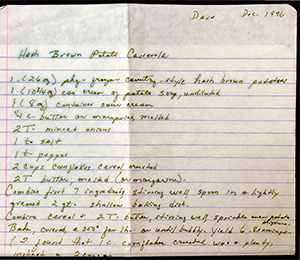 Dava Dec. 1996
Hash Brown Potato Casserole
1 - (26 oz) pkg - frozen country - style hash brown potatoes
1 (10¾ oz) can cream of potato soup, undiluted
1 (8 oz) container sour cream
¼ c. butter or margarine, melted
2 T. minced onions
1 t salt
1 t. pepper
2 cups cornflakes cereal crushed
2 T. butter, melted (or margarine).
Combine first 7 ingredients stirring well spoon in a lightly
greased 2 qt. shallow baking dish.
Combine cereal & 2 T. butter, stirring well sprinkle over potato
Bake, covered @ 350° for 1 h. or until bubbly. Yield 6 servings.
I found that 1 c. cornflakes crushed was plenty.